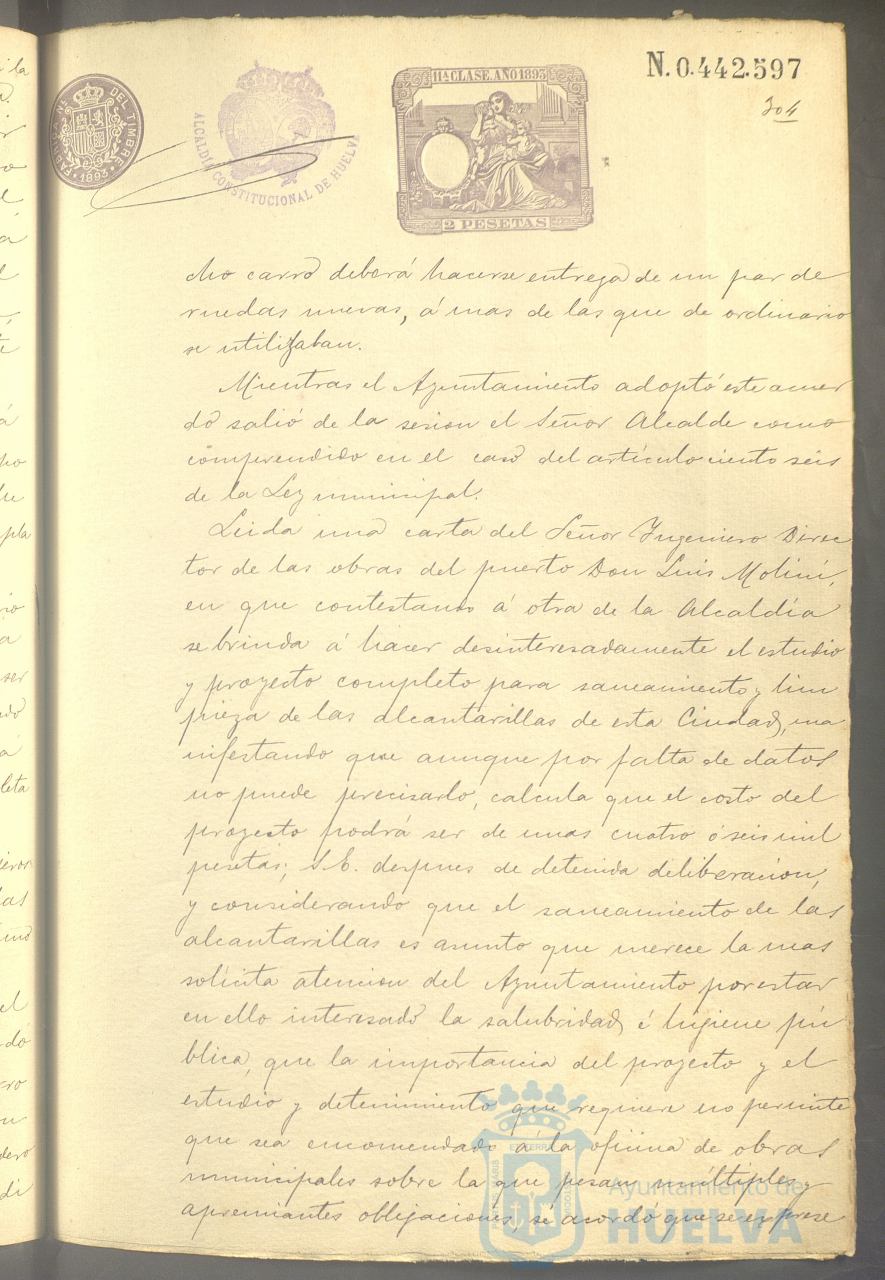 N. 0.442.597
304
FABRICA Nal. DEL TIMBRE
1893
ALCALDIA CONSTITUCIONAL DE HUELVA
11ª CLASE. AÑO 1893
2 PESETAS
cho carro deberá hacerse entrega de un par de
ruedas nuevas, á mas de las que de ordinario
se utilizaban.
Mientras el Ayuntamiento adoptó este acuer
do salió de la sesion el Señor Alcalde como
comprendido en el caso del artículo ciento seis
de la Ley municipal.
Leida una carta del Señor Ingeniero Direc
tor de las obras del puerto Don Luis Molini,
en que contestando á otra de la Alcaldía
se brinda á hacer desinteresadamente el estudio
y proyecto completo para saneamiento y lim
pieza de las alcantarillas de esta Ciudad, ma
nifestando que aunque por falta de datos
no puede precisarlo, calcula que el costo del
proyecto podrá ser de unas cuatro ó seis mil
pesetas; S.E. despues de detenida deliberacion,
y considerando que el saneamiento de las
alcantarillas es asunto que merece la mas
solícita atencion del Ayuntamiento por estar
en ello interesado la salubridad é higiene pú
blica, que la importancia del proyecto y el
estudio y detenimiento que requiere no permite
que sea encomendado á la oficina de obras
municipales sobre la que pesan múltiples y
apremiantes obligaciones, se acordó que se exprese
Ayuntamiento de
HUELVA